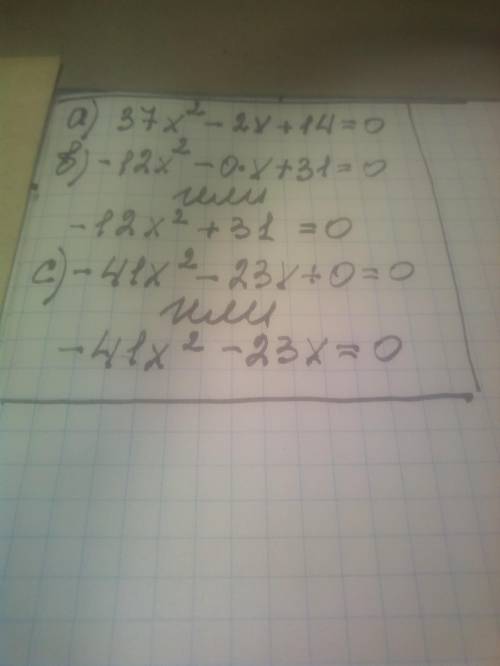 a) 37x² - 2x + 14 = 0
b) -12x² - 0·x + 31 = 0
или
-12x² + 31 = 0
c) -41x² - 23x + 0 = 0
или
-41x² - 23x = 0